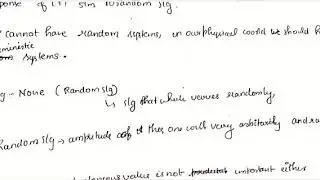 ponse of LTI s/m to random sig.
cannot have random systems, in our physical world we should h
ministic
systems.
g - None (Random sig)
↳ sig that whole varies randomly
Random sig → amplitude of this one will vary arbitrarily and ra
value is not important either